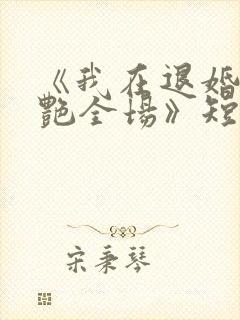 《我在退婚
艳全场》短
宋秉琴